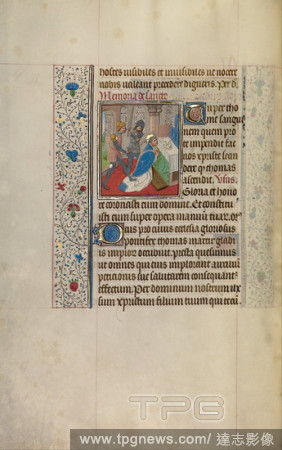 hostes visibiles et invisibiles ne nocere
nobis valeant precedere digneris. Per d.
Memoria de sancto
Tu per tho
me sangui
nem quem pro
te impendit fac
nos xpriste scan
dere quo thomas
ascendit. Vsus.
Gloria et hono
re coronasti eum domine. Et constitui
sti eum super opera manuum tuar. or
Deus pro cuius ecclesia gloriosus
pontifex thomas martir gladiis
impiorum occubuit. presta quesumus
ut omnes qui eius implorant auxilium
peticionis sue salutarem consequantur
effectum. Per dominum nostrum ih
sum xpristum filium tuum qui tecum.
TPG
www.tpgnews.com/ 達志影像